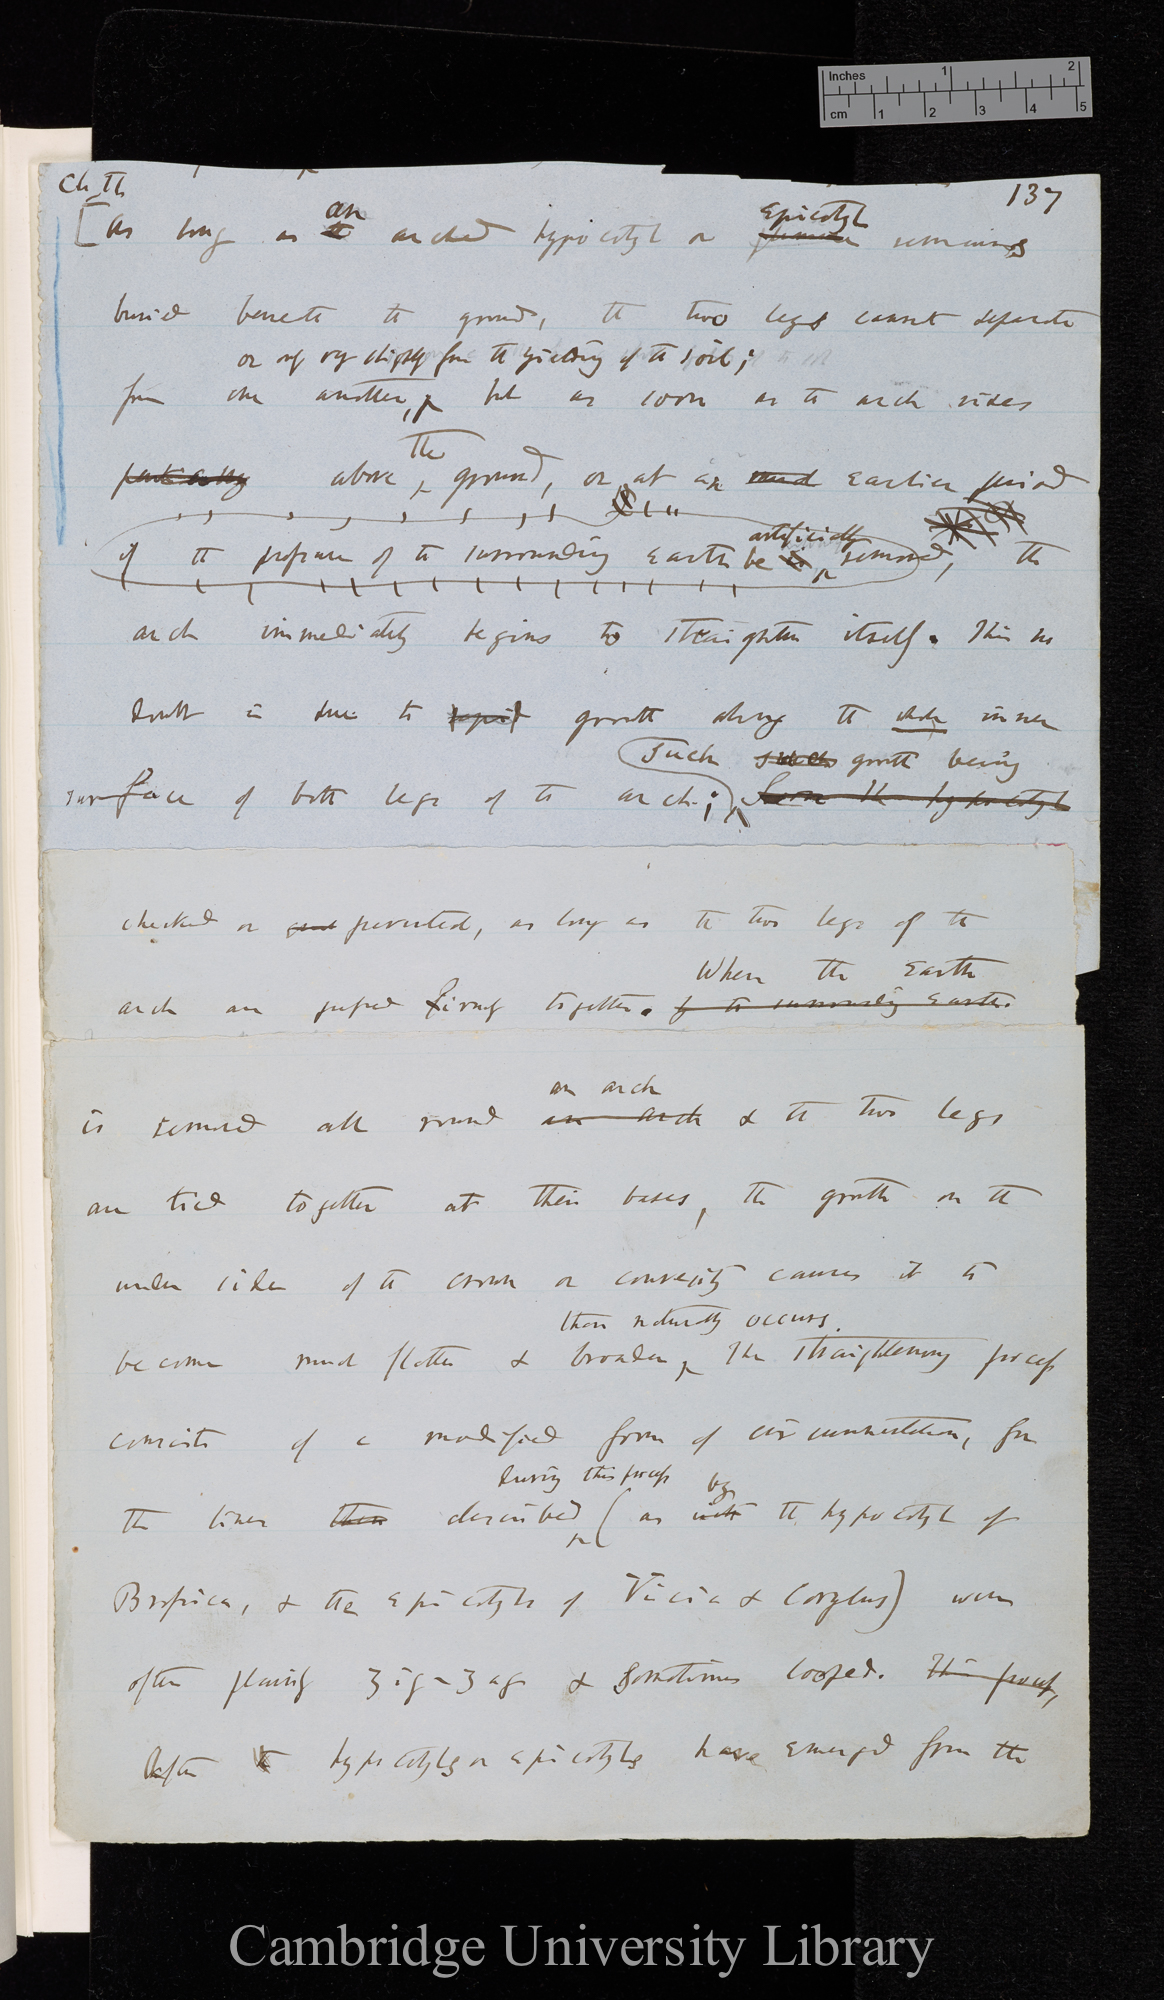 Inches 1 2
cm 1 2 3 4 5
Ch. Th 137
an epicotyl
[As long as the arched hypocotyl or remains
buried beneath the ground, the two legs cannot separate
or only very slightly from the yielding of the soil;
from one another, but as soon as the arch rises
the
partially above ground, or at an much earlier period
artificially
if the pressure of the surrounding earth be is removed, the
arch immediately begins to straighten itself. This no
doubt is due to rapid growth along the whole inner
Such such growth being
surface of both legs of the arch; From the hypocotyl
checked or and prevented, as long as the two legs of the
When the Earth
arch are pressed firmly together. If the surrounding Earth
an arch
is removed all round an arch & the two legs
are tied together at their bases, the growth on the
under side of the crown or convexity causes it to
than naturally occurs.
become much flatter & broader, The straightening process
consists of a modified form of circumnutation, for
during this process by
the lines then described, (as with the hypocotyl of
Brassica, & the epicotyls of Vicia & Corylus) were
often plainly zig-zag & sometimes looped. This process,
After the hypocotyls or epicotyls have emerged from the
Cambridge University Library